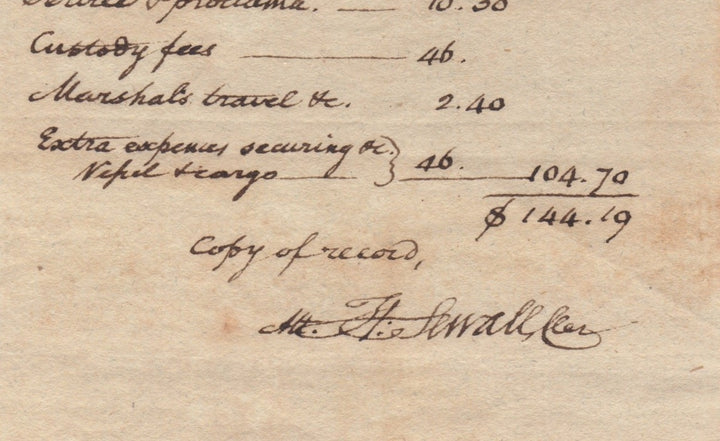 & proclama. — 10.30
Custody fees — 46.
Marshal's travel &c. 2.40
Extra expences securing &c. } 46. — 104.70
Vessel & cargo —
$ 144.19
Copy of record,
Att. H. Sewall, Cler